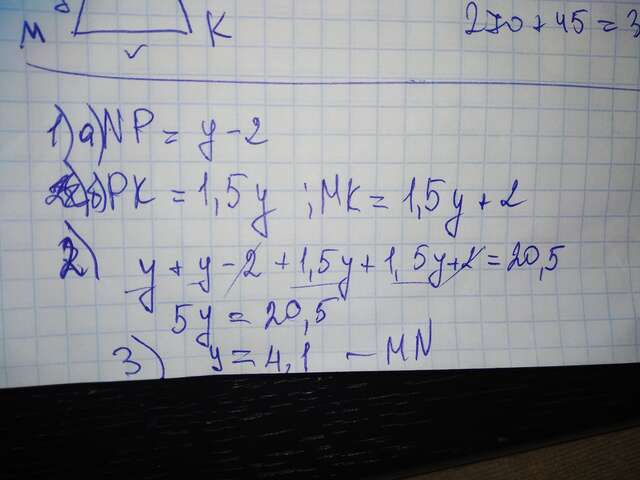 250 + 45 = 3
M K
1) a) NP = y - 2
б) PK = 1,5y ; MK = 1,5y + 2
2) y + y - 2 + 1,5y + 1,5y + 2 = 20,5
5y = 20,5
3) y = 4,1 — MN